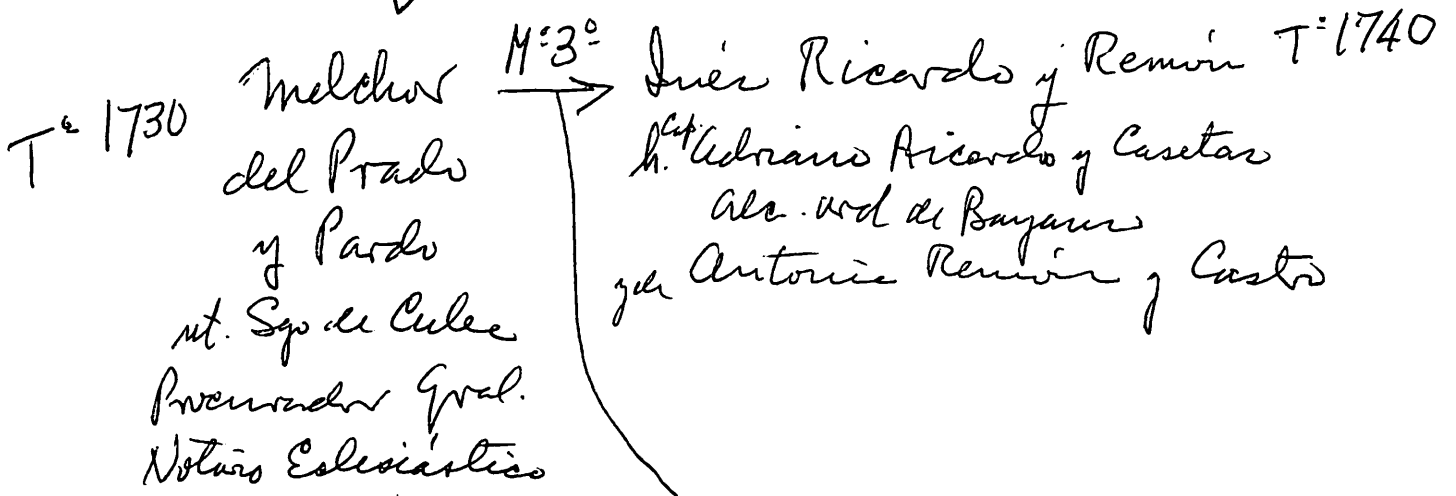 Tº 1730
Melchor
del Prado
y Pardo
nt. Sgo de Cuba
Procurador Gral.
Notario Eclesiástico
Mº 3º
Inés Ricardo y Remón Tº 1740
h. Cap. Adriano Ricardo y Casetas
Alc. ord de Bayamo
y de Antonia Remón y Castro